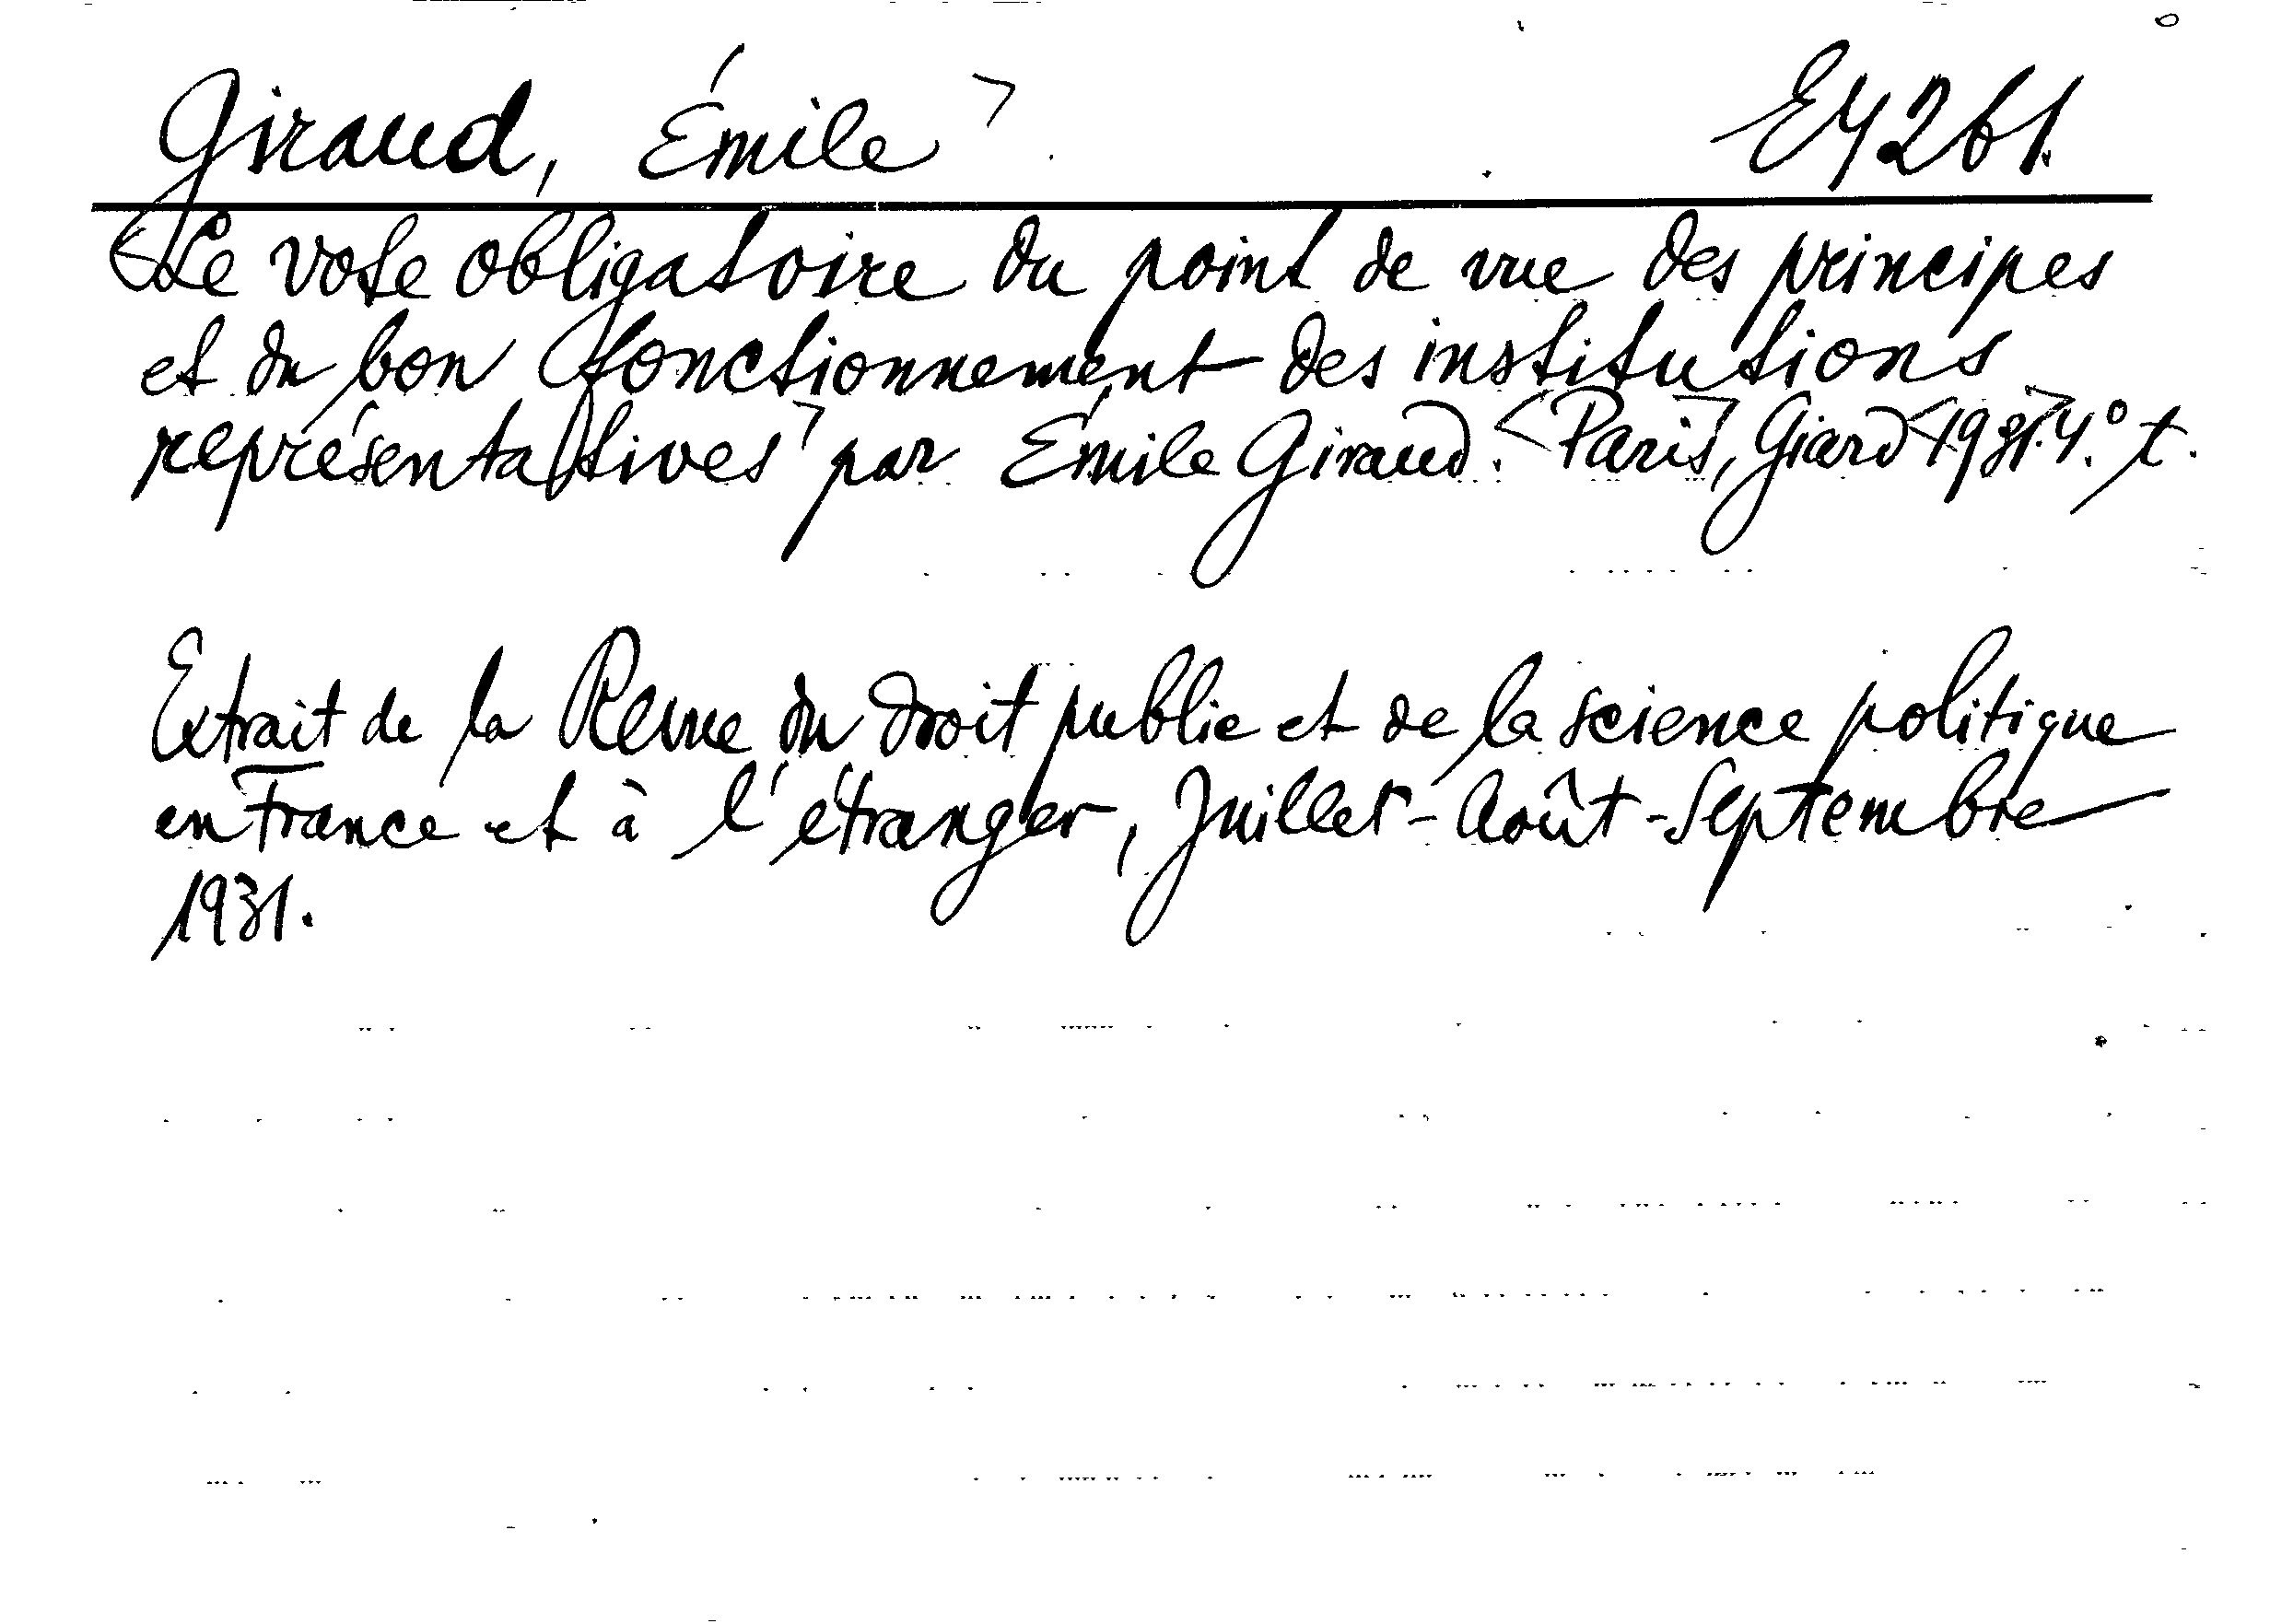 Giraud, Émile E4261.
Le vote obligatoire du point de vue des principes
et du bon fonctionnement des institutions
représentatives par Émile Giraud. Paris, Giard 1931. 4.° t.
Extrait de la Revue du droit public et de la science politique
en France et à l'étranger, Juillet-Août-Septembre
1931.